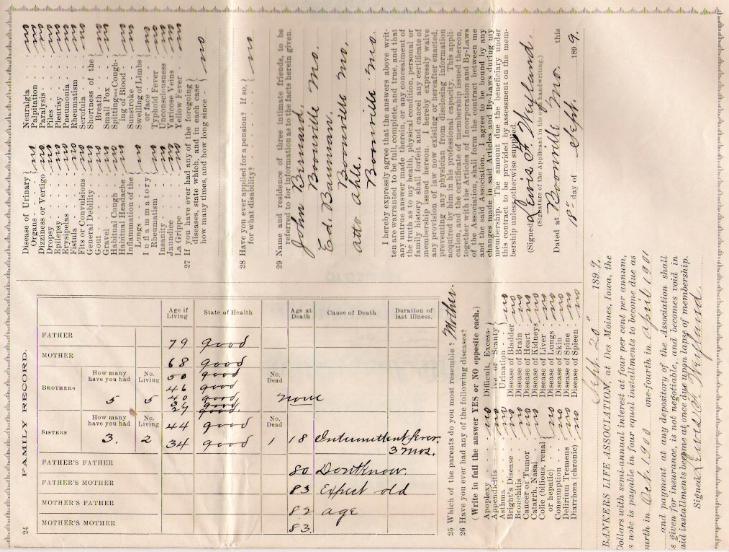 24
FAMILY RECORD.
Age if Living
State of Health
Age at Death
Cause of Death
Duration of last Illness.
FATHER
79 good
MOTHER
68 good
BROTHERS
How many have you had
No. Living
No. Dead
5 5
50 good
46 good
40 good
good
none
SISTERS
How many have you had
No. Living
No. Dead
3. 2
44 good
34 good
1 18 Intermittent fever. 3 mos.
FATHER'S FATHER
80 Dont know.
FATHER'S MOTHER
83 Expect old
MOTHER'S FATHER
82 age
MOTHER'S MOTHER
83.
25 Which of the parents do you most resemble? Mother.
26 Have you ever had any of the following diseases?
(Write in full the answer YES or NO opposite each.)
Apoplexy no
Appendicitis no
Asthma no
Bright's Disease no
Bronchitis no
Cancer or Tumor no
Catarrh no
Colic (bilious, renal or hepatic) no
Consumption no
Delirium Tremens no
Diarrhea (chronic) no
Difficult, Excessive or Scanty Urination no
Disease of Bladder no
Disease of Brain no
Disease of Heart no
Disease of Kidneys no
Disease of Liver no
Disease of Lungs no
Disease of Skin no
Disease of Spine no
Disease of Spleen no
Disease of Urinary Organs no
Dizziness or Vertigo no
Dropsy no
Epilepsy no
Erysipelas no
Fistula no
Fits or Convulsions no
General Debility no
Gout no
Gravel no
Habitual Cough no
Habitual Headache no
Inflammation of the Lungs no
Inflammatory Rheumatism no
Insanity no
Jaundice no
La Grippe no
Neuralgia no
Palpitation no
Paralysis no
Piles no
Pleurisy no
Pneumonia no
Rheumatism no
Scrofula no
Shortness of the Breath no
Small Pox no
Spitting or Coughing of Blood no
Sunstroke no
Swelling of Limbs or face no
Typhoid Fever no
Unconsciousness no
Varicose Veins no
Yellow Fever no
27 If you have ever had any of the foregoing
diseases state which, and in each case
how many times, and how long since
no
28 Have you ever applied for a pension? If so,
for what disability?
no
29 Name and residence of three intimate friends, to be
referred to for information as to the facts herein given.
John
Boonville Mo.
Ed. Bauman.
Boonville Mo.
Otto Ahle.
Boonville Mo.
I hereby expressly agree that the answers above writ-
ten are warranted to be full, complete, and true, and that
any untrue answer made therein, or any concealment of
the truth as to my health, physical condition, personal or
family history shall forfeit and cancel any certificate of
membership issued herein. I hereby expressly waive
any provision of law now existing or hereafter enacted,
preventing any physician from disclosing information
acquired by him in a professional capacity. This appli-
cation, and the certificate of membership issued thereon,
together with the Articles of Incorporation and By-Laws
of the Association, shall form the contract between me
and the said Association. I agree to be bound by any
changes made in said Articles and By-Laws during my
membership. The amount due the beneficiary under
this contract to be provided by assessment on the mem-
bership unless otherwise supplied.
(Signed) Lewis F. Weyland.
(Signature of the applicant in his own handwriting.)
Dated at Boonville Mo. this
day of Sept. 1899.
Sept. 20 1899.
BANKERS LIFE ASSOCIATION, at Des Moines, Iowa, the
dollars with semi-annual interest at four per cent per annum,
note is payable in four equal installments to become due as
urth in Oct. 1900 one-fourth in April 1901
and payment at any depository of the Association shall
given for insurance, is not negotiable, and becomes void in
aid installments become at once due upon lapse of membership.
Signed Lewis F. Weyland.